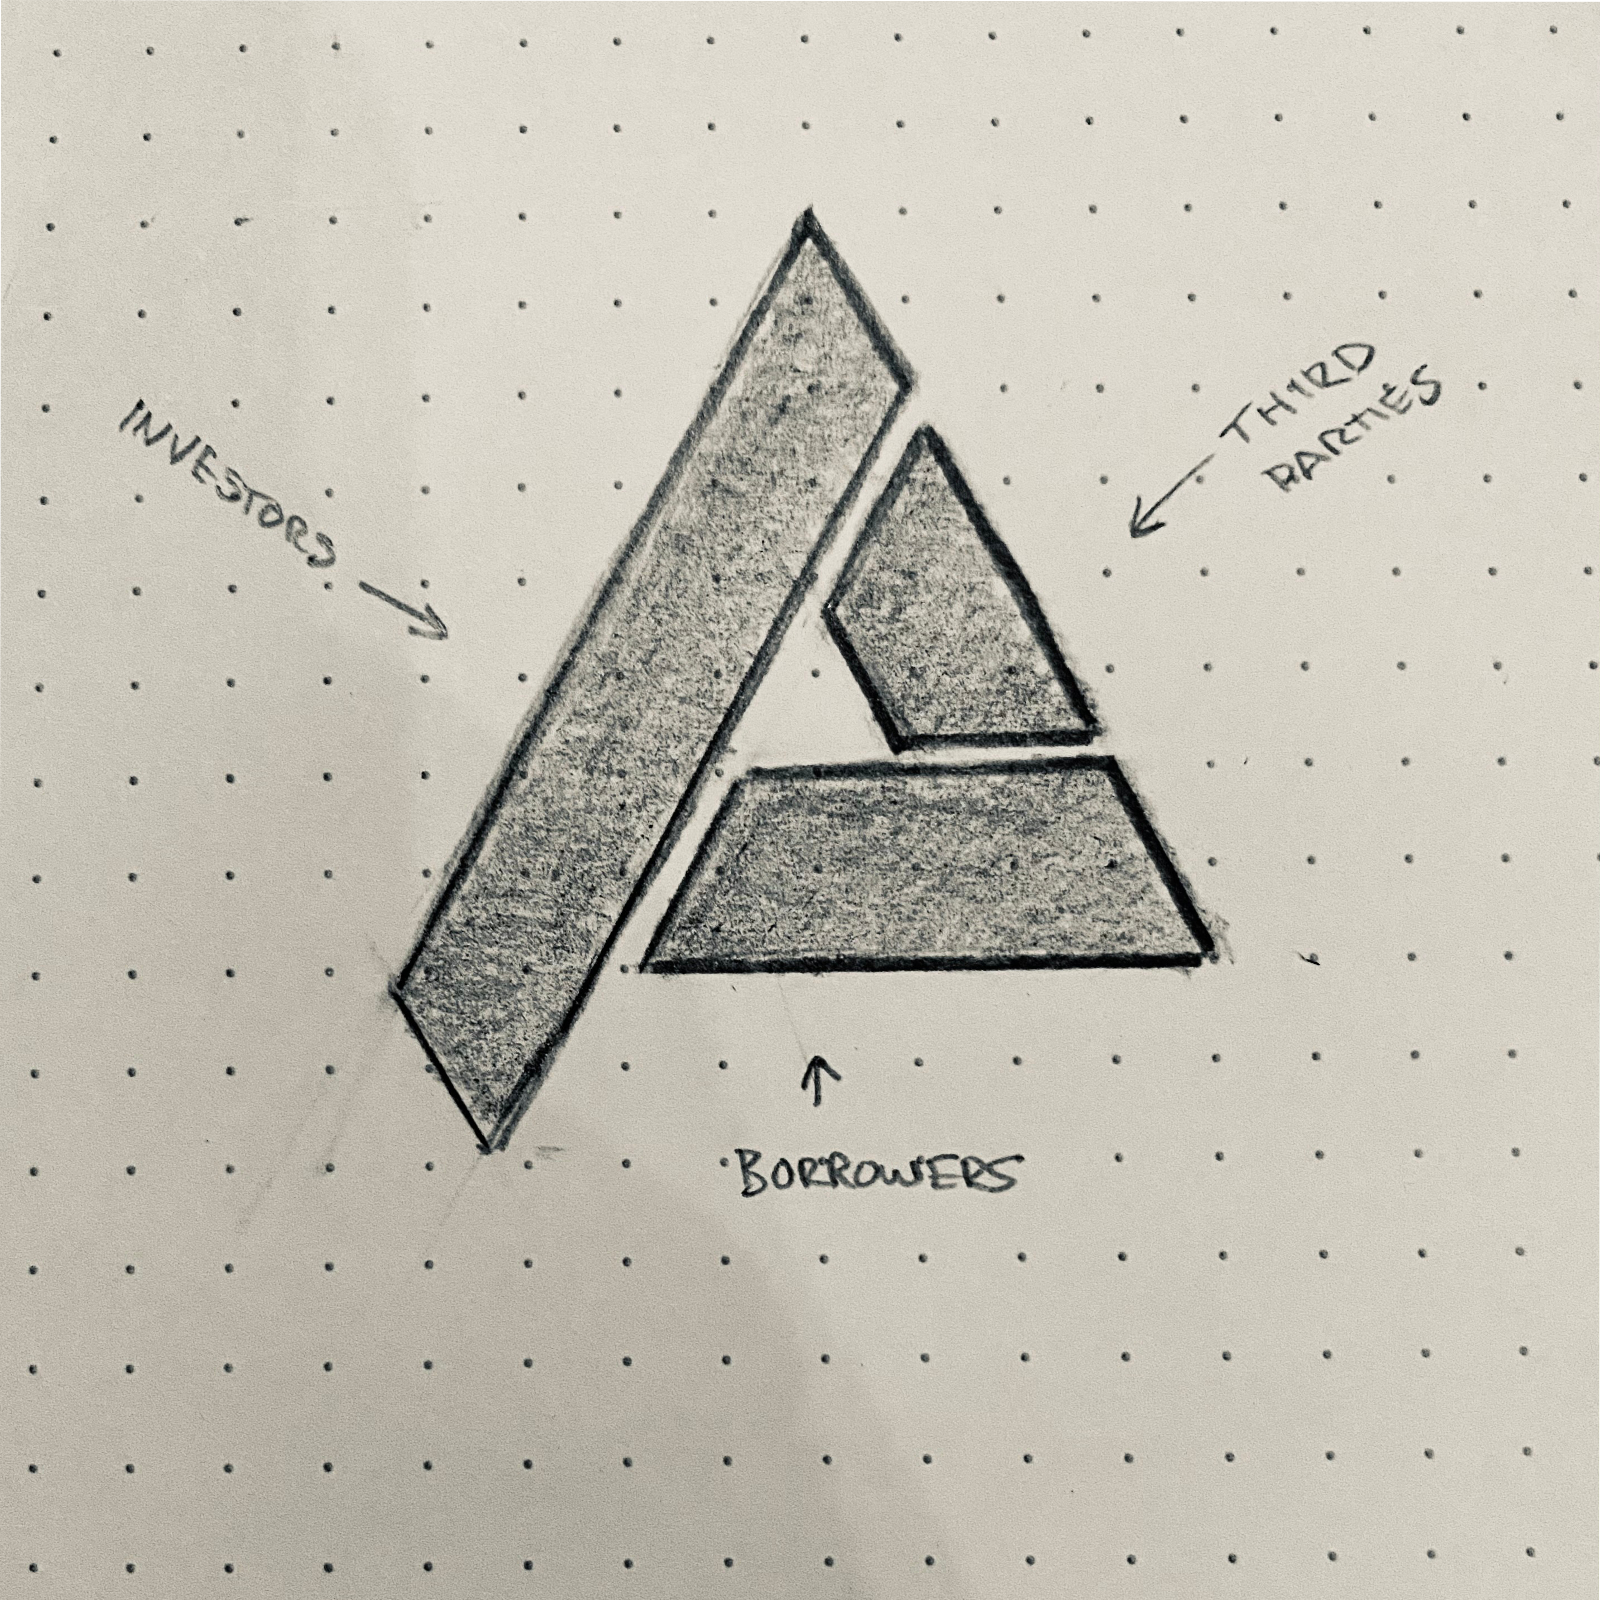 INVESTORS
THIRD
PARTIES
BORROWERS